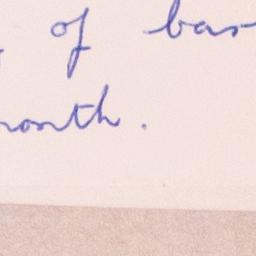 of bas
month.